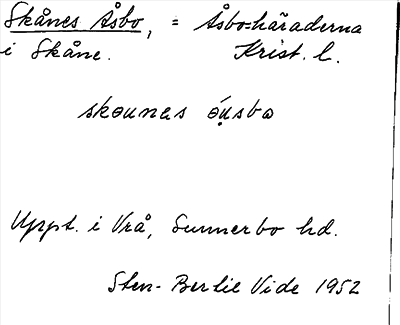 Skånes Åsbo, = Åsbo-häraderna
i Skåne. Krist. l.
skɵunas ɵ́ụsbɷ
Uppt. i Vrå, Sunnerbo hd.
Sten-Bertil Vide 1952